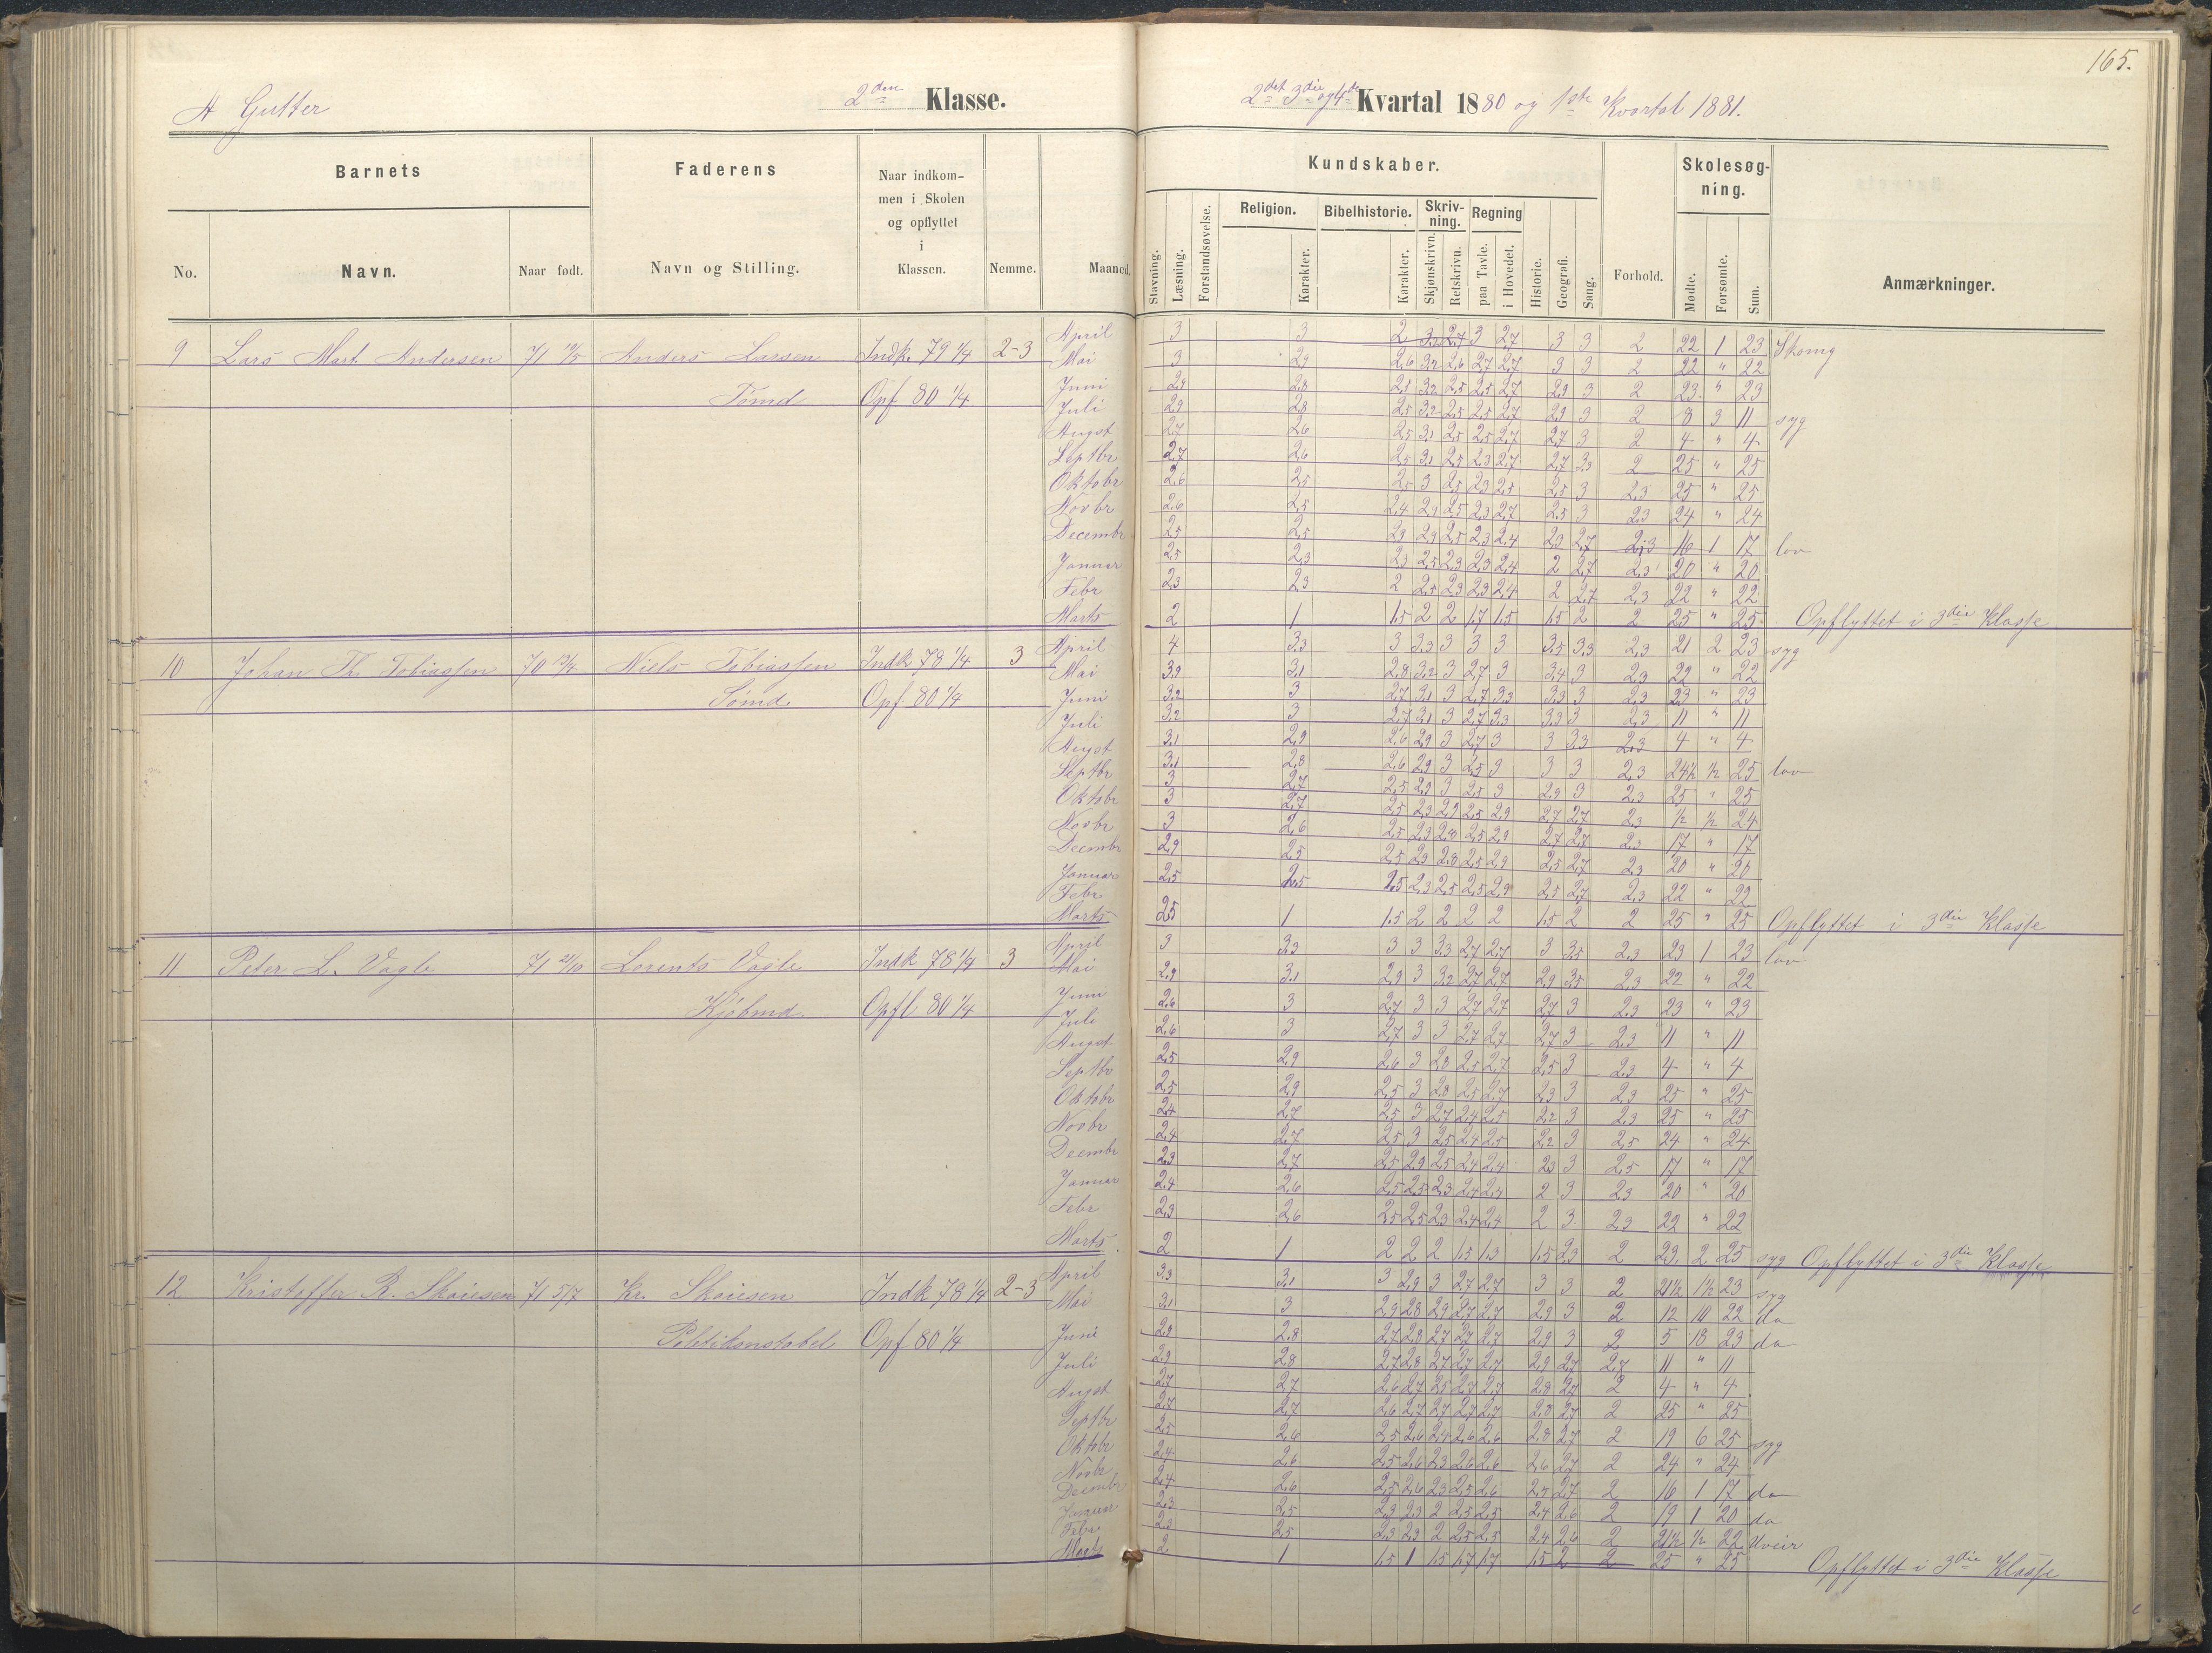 165.
A Gutter
2den Klasse.
2det 3die og 4de Kvartal 1880 og 1ste Kvartal 1881.
Barnets
Faderens
Naar indkommen i Skolen og opflyttet i Klassen.
Nemme.
Maaned.
No.
Navn.
Naar født.
Navn og Stilling.
Kundskaber.
Stavning.
Læsning.
Forstandsøvelse.
Religion.
Karakter.
Bibelhistorie.
Karakter.
Skrivning.
Skjønskrivn.
Retskrivn.
Regning
paa Tavle.
i Hovedet.
Historie.
Geografi.
Sang.
Forhold.
Skolesøgning.
Mødte.
Forsomte.
Sum.
Anmærkninger.
9 Lars Mart. Andersen 71 Anders Larsen Indk. 79 1/4 2-3
Tømd. Opf 80 1/4
April 3 3 2 3 3 2,7 3 3 2 22 1 23
Mai 3 2,9 2,6 3,2 2,6 2,7 2,7 3 3 2 22 " 22
Juni 2,9 2,8 2,5 3,2 2,5 2,5 2,7 2,9 3 2 23 " 23
Juli 2,9 2,8 2,5 3,2 2,5 2,5 2,7 2,9 3 2 8 3 11 syg
Augst 2,7 2,6 2,5 3,1 2,5 2,5 2,7 2,7 3 2 4 " 4
Septbr 2,7 2,6 2,5 3,1 2,5 2,3 2,7 2,7 3,3 2 25 " 25
Oktobr 2,6 2,5 2,5 3 2,5 2,3 2,5 2,5 3 2,3 25 " 25
Novbr 2,6 2,5 2,4 2,9 2,5 2,3 2,7 2,5 3 2,3 24 " 24
Decembr 2,5 2,5 2,9 2,5 2,3 2,4 2,3 2,7 2,3 16 1 17 lov
Januar 2,5 2,3 2,3 2,5 2,3 2,3 2,4 2 2,7 2,3 20 " 20
Febr 2,3 2,3 2 2,5 2,3 2,3 2,4 2 2,7 2,3 22 " 22
Marts 2 1 1,5 2 2 1,7 1,5 1,5 2 2 25 " 25 Opflyttet i 3die Klasse
10 Johan Th. Tobiassen 70 Niels Tobiassen Indk 78 1/4 3
Sømd. Opf. 80 1/4
April 4 3,3 3 3,3 3 3 3 3,5 3,3 2,3 21 2 23 syg
Mai 3,2 3,1 2,8 3,2 3 2,7 3 3,4 3 2,3 22 " 22
Juni 3,2 3 2,7 3,1 3 2,7 3,3 3,3 3 2,3 23 " 23
Juli 3,2 3 2,7 3,1 3 2,7 3,3 3,3 3 2,3 11 " 11
Augst 3,1 2,9 2,6 2,9 3 2,7 3 3 3,3 2,3 4 " 4
Septbr 3,1 2,8 2,6 2,9 3 2,5 3 3 3 2,3 24 1/2 1/2 25 lov
Oktobr 3 2,7 2,5 2,9 3 2,5 3 2,9 3 2,3 25 " 25
Novbr 3 2,7 2,5 2,3 2,9 2,5 2,9 2,7 2,7 2,3 1/2 1/2 24
Decmbr 3 2,6 2,5 2,3 2,8 2,5 2,9 2,7 2,7 2,3 17 " 17
Januar 2,9 2,5 2,5 2,3 2,8 2,5 2,9 2,5 2,7 2,3 20 " 20
Febr 2,5 2,5 2,5 2,3 2,5 2,5 2,9 2,5 2,7 2,3 22 " 22
Marts 2,5 1 1,5 2 2 2 2 1,5 2 2 25 " 25 Opflyttet i 3die Klasse
11 Peter L. Vagle 71 21/10 Lorents Vagle Indk 78 1/4 3
Kjøbmd. Opfl 80 1/4
April 3 3,3 3 3 3,3 2,7 2,7 3 3,5 2,3 23 1 23 lov
Mai 2,9 3,1 2,9 3 3,2 2,7 2,7 2,9 3,5 2,3 22 " 22
Juni 2,6 3 2,7 3 3 2,7 2,7 2,7 3 2,3 23 " 23
Juli 2,6 3 2,7 3 3 2,7 2,7 2,7 3 2,3 11 " 11
Augst 2,5 2,9 2,6 3 2,8 2,5 2,7 2,5 3 2,3 4 " 4
Septbr 2,5 2,9 2,5 3 2,8 2,5 2,7 2,3 3 2,3 25 " 25
Oktobr 2,4 2,7 2,5 3 2,7 2,4 2,5 2,2 3 2,3 25 " 25
Novbr 2,4 2,7 2,5 3 2,5 2,4 2,5 2,2 3 2,5 24 " 24
Decmbr 2,3 2,7 2,5 2,9 2,5 2,4 2,4 2,3 3 2,5 17 " 17
Januar 2,4 2,6 2,5 2,5 2,3 2,4 2,4 2 3 2,3 20 " 20
Febr 2,3 2,6 2,5 2,5 2,3 2,4 2,4 2 3 2,3 22 " 22
Marts 2 1 2 2 2 1,5 1,3 1,5 2,3 2 23 2 25 syg Opflyttet i 3die Klasse
12 Kristoffer R. Skoiesen 71 5/7 Kr. Skoiesen Indk 78 1/4 2-3
Politikonstabel Opf 80 1/4
April 3,3 3,1 3 2,9 3 2,7 2,7 3 3 2 21 1/2 1 1/2 23 syg
Mai 3,1 3 2,9 2,8 2,9 2,7 2,7 2,9 3 2 12 10 22 do
Juni 2,9 2,8 2,7 2,8 2,7 2,7 2,7 2,9 3 2 5 18 23 do
Juli 2,9 2,8 2,7 2,8 2,7 2,7 2,7 2,9 2,7 2,7 11 " 11
Augst 2,7 2,7 2,6 2,7 2,5 2,7 2,7 2,8 2,7 2 4 " 4
Septbr 2,7 2,7 2,6 2,7 2,7 2,7 2,7 2,8 2,7 2 25 " 25
Oktobr 2,5 2,6 2,5 2,6 2,4 2,6 2,6 2,8 2,7 2 19 6 25 syg
Novbr 2,4 2,6 2,5 2,6 2,3 2,6 2,6 2,6 2,7 2 24 " 24
Decembr 2,4 2,6 2,5 2,6 2,3 2,5 2,6 2,4 2,7 2 16 1 17 do
Januar 2,3 2,5 2,3 2,3 2 2,5 2,5 2,4 2,6 2 19 1 20 do
Febr 2,3 2,5 2,3 2,3 2 2,5 2,5 2,4 2,6 2 21 1/2 1/2 22 Uveir
Marts 2 1 1,5 1 1,5 1,7 1,7 1,5 2 2 25 " 25 Opflyttet i 3die Klasse